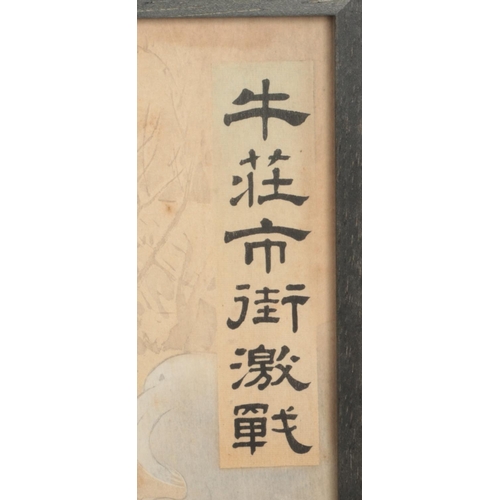 牛荘市街激戰